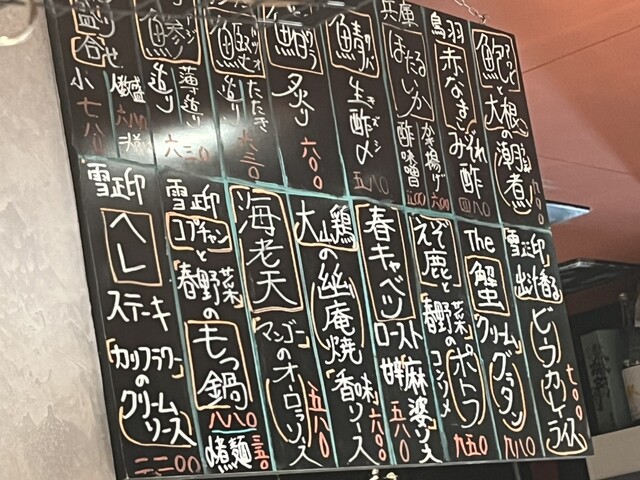 鮑と大根の潮煮 九〇〇
鳥羽 赤なまこ みぞれ酢 四八〇
兵庫 ほたるいか
かき揚げ 六〇〇
酢味噌 五〇〇
鯖 サバ 生酢〆 キズシ 五八〇
炙り 六〇〇
たたき
造り 六三〇
鯵 アジ
薄造り
造り 六三〇
盛り合せ
小 七八〇
雪正印 出汁香る ビフカツライス 七〇〇
The 蟹 クリームグラタン 九八〇
えぞ鹿と春野菜のコンソメポトフ 九五〇
春キャベツロースト 麻婆ソース 五八〇
大山鶏の幽庵焼 香味ソース 六〇〇
海老天 マンゴーのオーロラソース 五八〇
雪正印 コプチャンと春野菜のもつ鍋 八八〇
煮麺 二五〇
雪正印 ヘレステーキ カリフラワーのクリームソース 二二〇〇